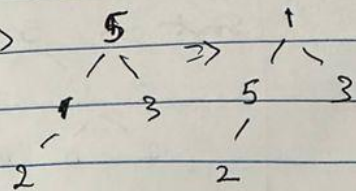 5 ⇒ 1
1 3 5 3
2 2